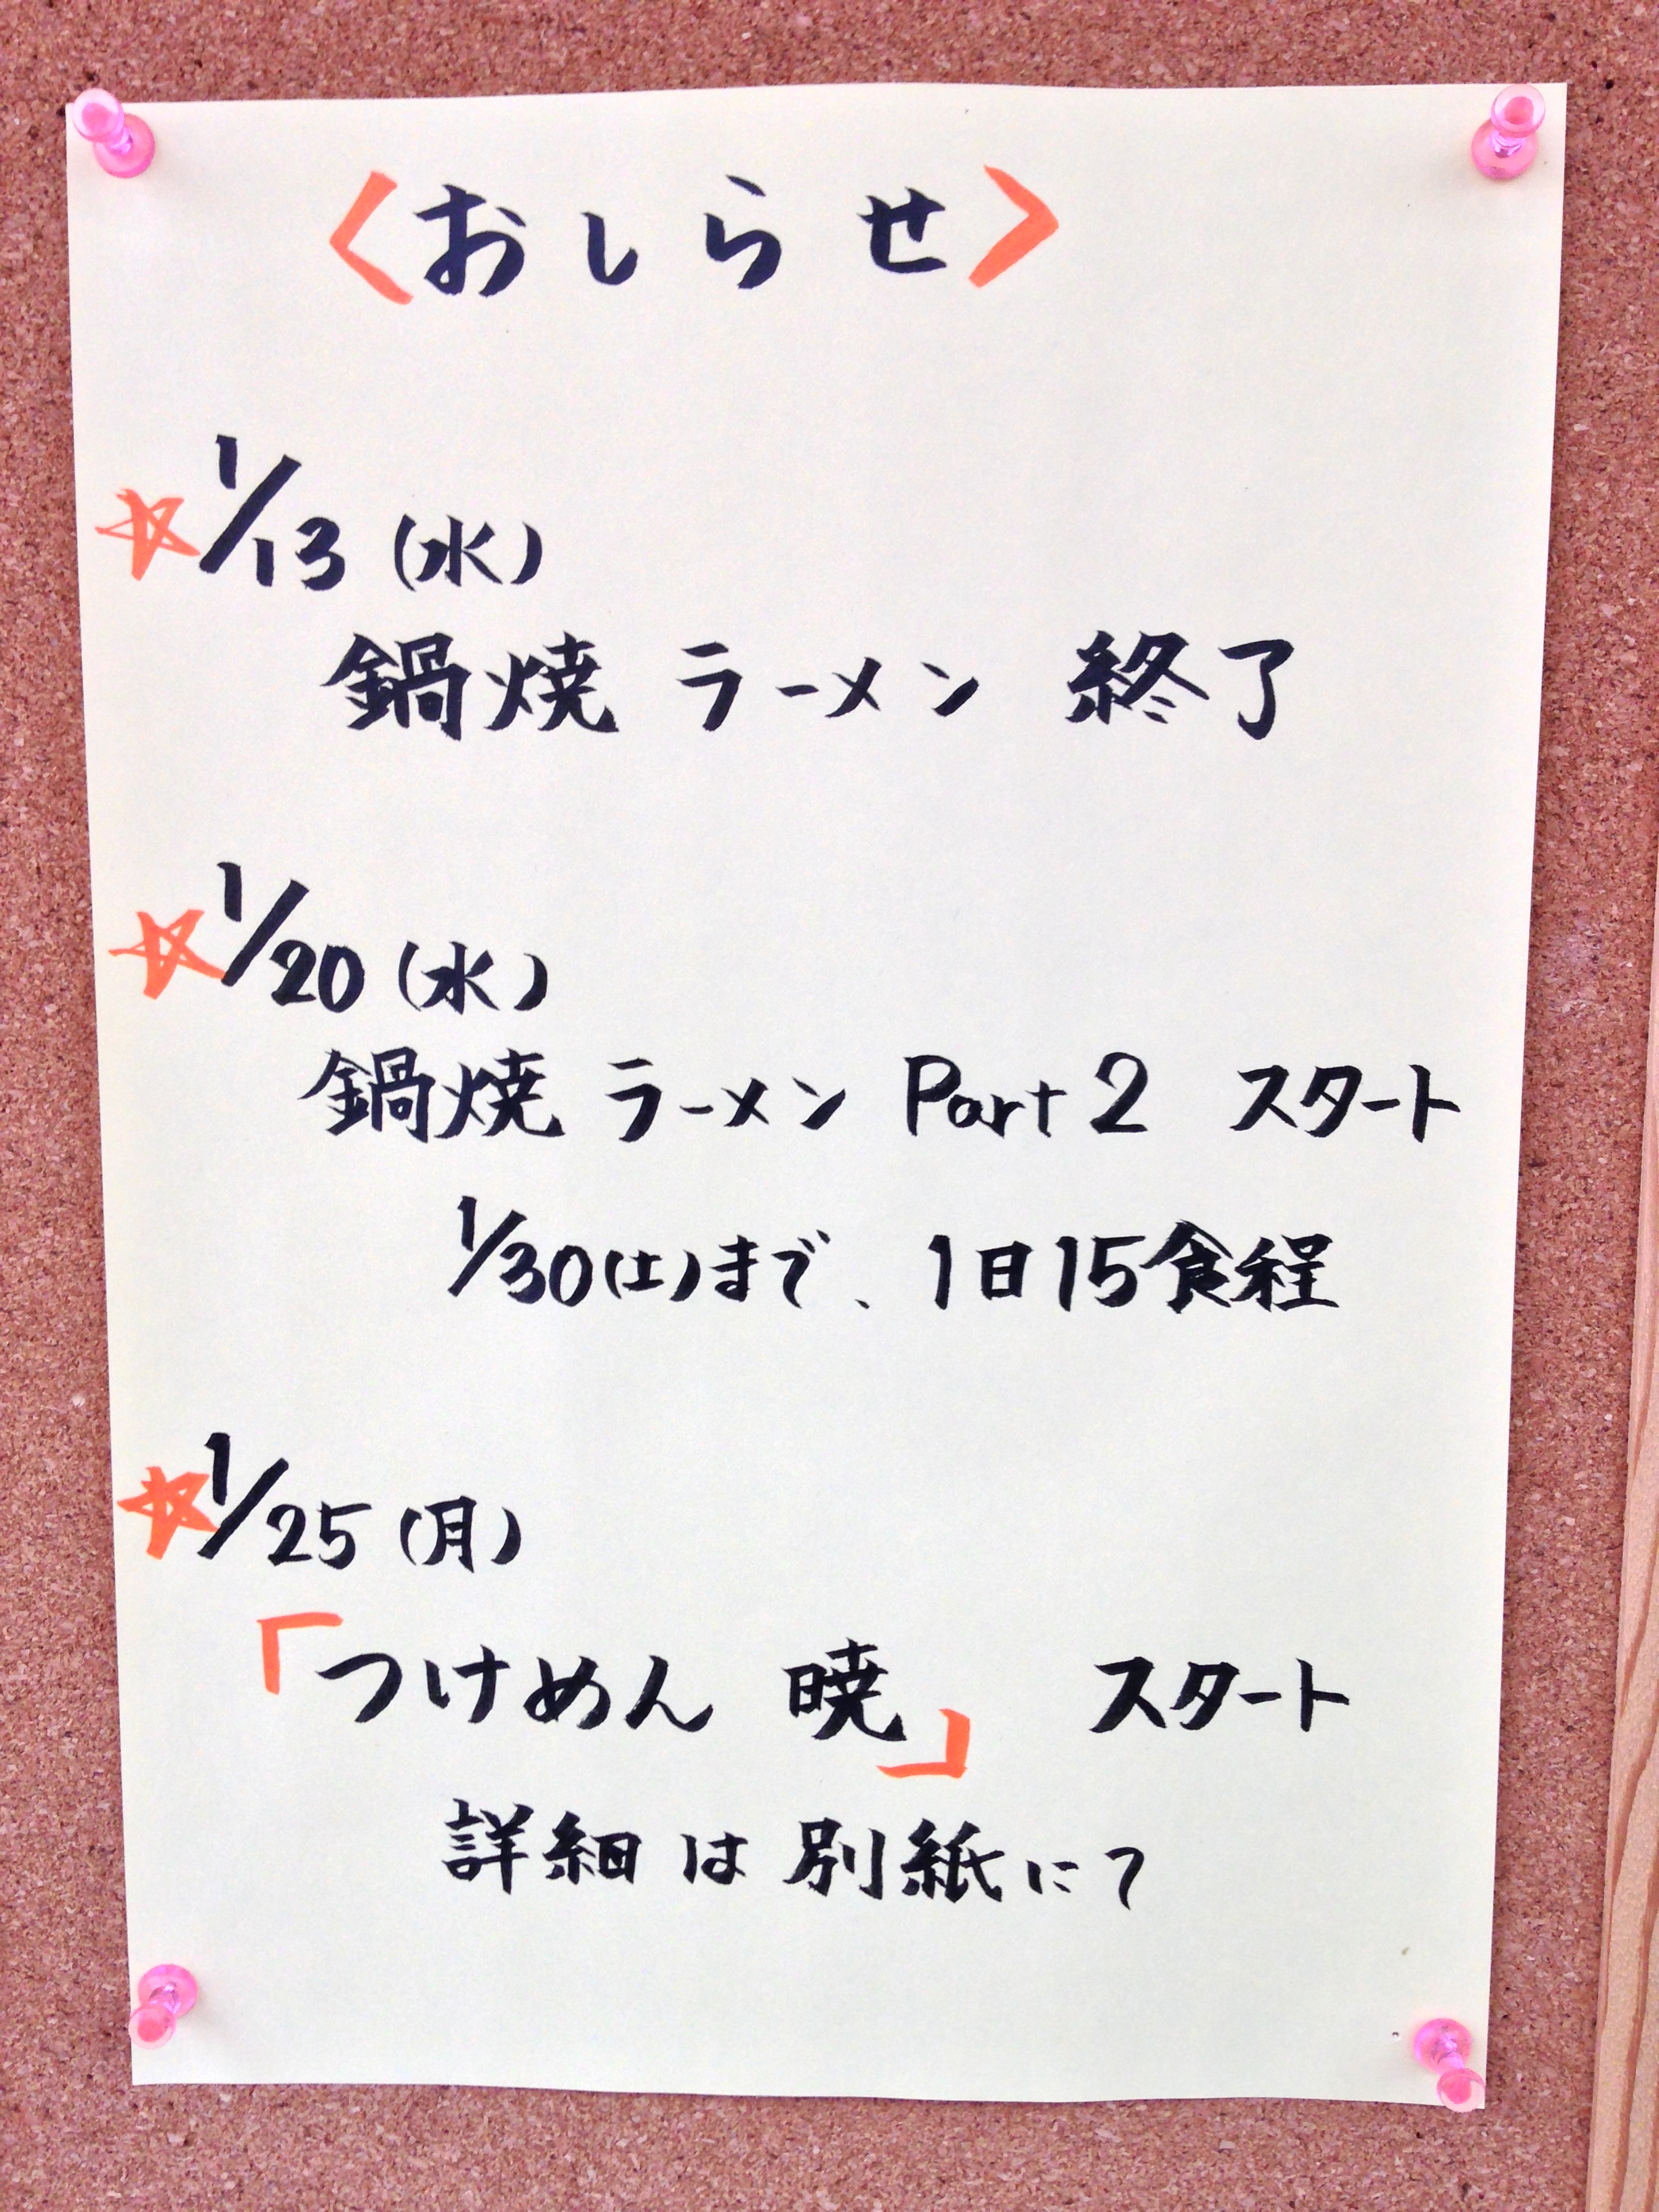 〈おしらせ〉
☆1/13(水)
鍋焼ラーメン 終了
☆1/20(水)
鍋焼ラーメン Part2 スタート
1/30(土)まで、1日15食程
☆1/25(月)
「つけめん 暁」 スタート
詳細は別紙にて